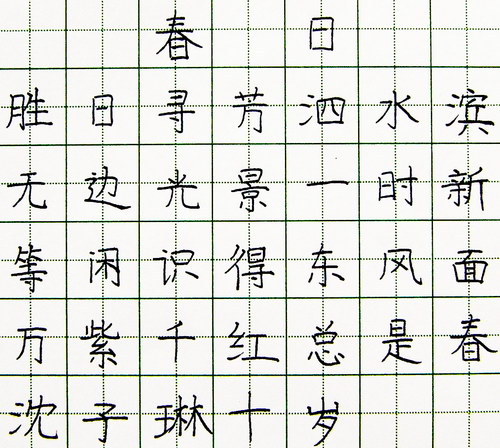 春日
胜日寻芳泗水滨
无边光景一时新
等闲识得东风面
万紫千红总是春
沈子琳十岁